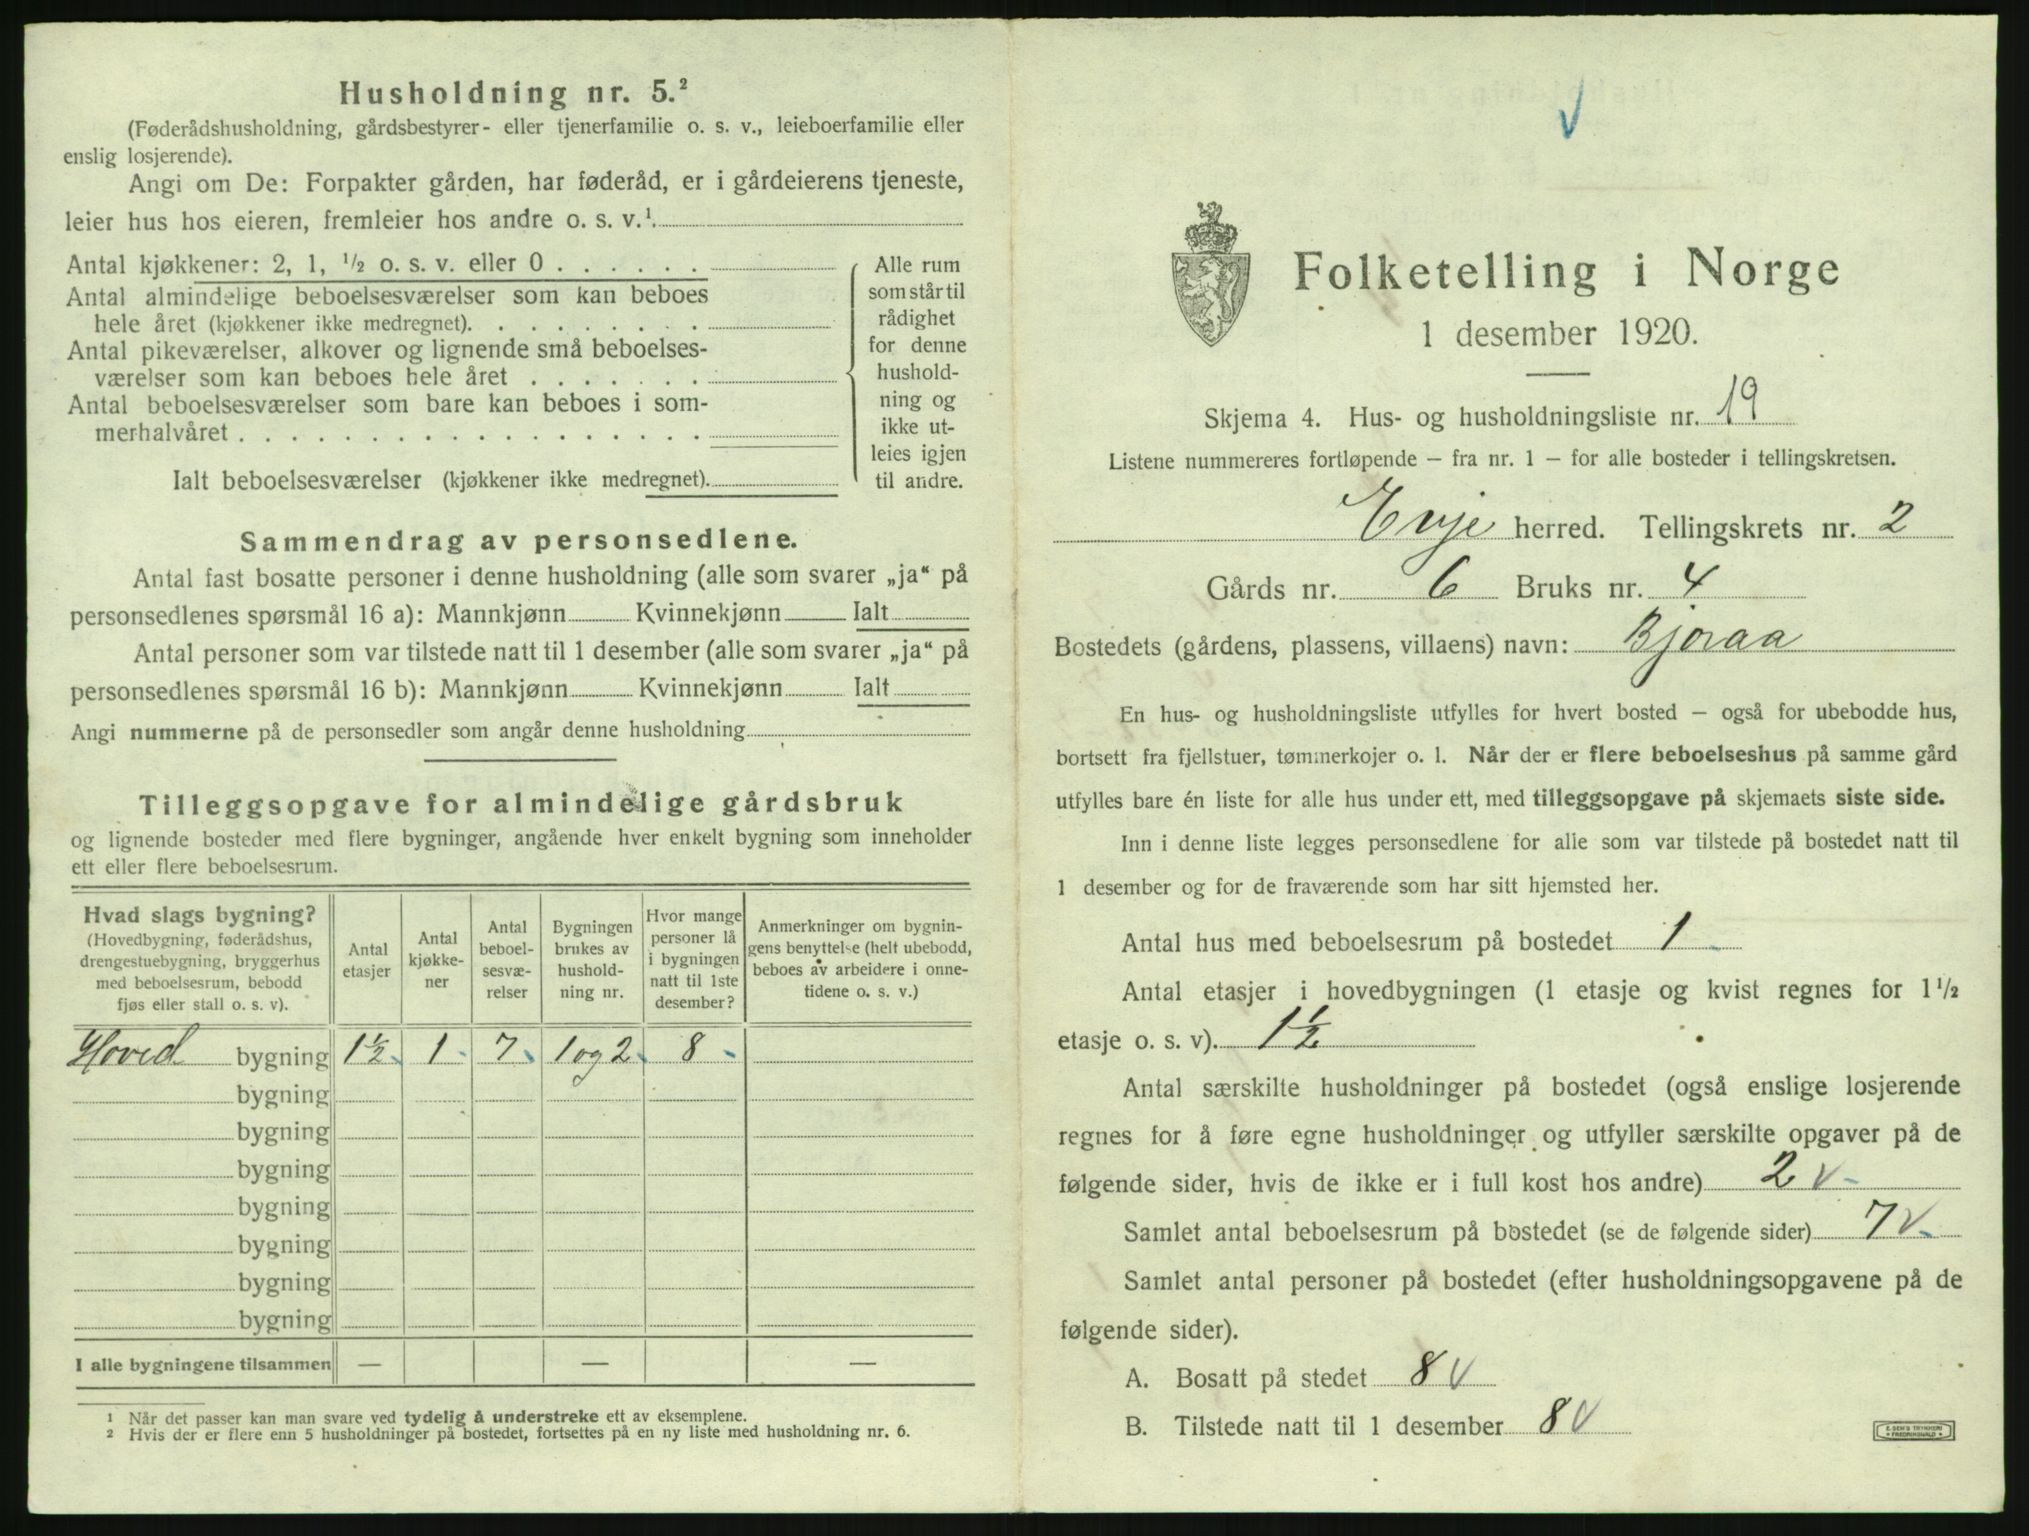 Husholdning nr. 5.²
(Føderådshusholdning, gårdsbestyrer- eller tjenerfamilie o. s. v., leieboerfamilie eller
enslig losjerende).
Angi om De: Forpakter gården, har føderåd, er i gårdeierens tjeneste,
leier hus hos eieren, fremleier hos andre o. s. v.¹
Antal kjøkkener: 2, 1, ½ o. s. v. eller 0 . . . . . .
Antal almindelige beboelsesværelser som kan beboes
hele året (kjøkkener ikke medregnet). . . . . . . . .
Antal pikeværelser, alkover og lignende små beboelses-
værelser som kan beboes hele året . . . . . . .
Antal beboelsesværelser som bare kan beboes i som-
merhalvåret . . . . . . . . . . . . . . . . . .
Ialt beboelsesværelser (kjøkkener ikke medregnet).
Alle rum
som står til
rådighet
for denne
hushold-
ning og
ikke ut-
leies igjen
til andre.
Sammendrag av personsedlene.
Antal fast bosatte personer i denne husholdning (alle som svarer „ja“ på
personsedlenes spørsmål 16 a): Mannkjønn Kvinnekjønn Ialt
Antal personer som var tilstede natt til 1 desember (alle som svarer „ja“ på
personsedlenes spørsmål 16 b): Mannkjønn Kvinnekjønn Ialt
Angi nummerne på de personsedler som angår denne husholdning
Tilleggsopgave for almindelige gårdsbruk
og lignende bosteder med flere bygninger, angående hver enkelt bygning som inneholder
ett eller flere beboelsesrum.
Hvad slags bygning?
(Hovedbygning, føderådshus,
drengestuebygning, bryggerhus
med beboelsesrum, bebodd
fjøs eller stall o. s. v).
Antal
etasjer
Antal
kjøkke-
ner
Antal
beboel-
sesvæ-
relser
Bygningen
brukes av
hushold-
ning nr.
Hvor mange
personer lå
i bygningen
natt til 1ste
desember?
Anmerkninger om bygnin-
gens benyttelse (helt ubebodd,
beboes av arbeidere i onne-
tidene o. s. v.)
Hoved bygning 1½ 1 7 1 og 2 8
bygning
bygning
bygning
bygning
bygning
bygning
bygning
I alle bygningene tilsammen — — —
¹ Når det passer kan man svare ved tydelig å understreke ett av eksemplene.
² Hvis der er flere enn 5 husholdninger på bostedet, fortsettes på en ny liste med husholdning nr. 6.
Folketelling i Norge
1 desember 1920.
Skjema 4. Hus- og husholdningsliste nr. 19
Listene nummereres fortløpende – fra nr. 1 – for alle bosteder i tellingskretsen.
Evje herred. Tellingskrets nr. 2
Gårds nr. 6 Bruks nr. 4
Bostedets (gårdens, plassens, villaens) navn: Bjoraa
En hus- og husholdningsliste utfylles for hvert bosted – også for ubebodde hus,
bortsett fra fjellstuer, tømmerkojer o. l. Når der er flere beboelseshus på samme gård
utfylles bare én liste for alle hus under ett, med tilleggsopgave på skjemaets siste side.
Inn i denne liste legges personsedlene for alle som var tilstede på bostedet natt til
1 desember og for de fraværende som har sitt hjemsted her.
Antal hus med beboelsesrum på bostedet 1
Antal etasjer i hovedbygningen (1 etasje og kvist regnes for 1½
etasje o. s. v). 1½
Antal særskilte husholdninger på bostedet (også enslige losjerende
regnes for å føre egne husholdninger og utfyller særskilte opgaver på de
følgende sider, hvis de ikke er i full kost hos andre) 2
Samlet antal beboelsesrum på bostedet (se de følgende sider) 7
Samlet antal personer på bostedet (efter husholdningsopgavene på de
følgende sider).
A. Bosatt på stedet 8
B. Tilstede natt til 1 desember 8